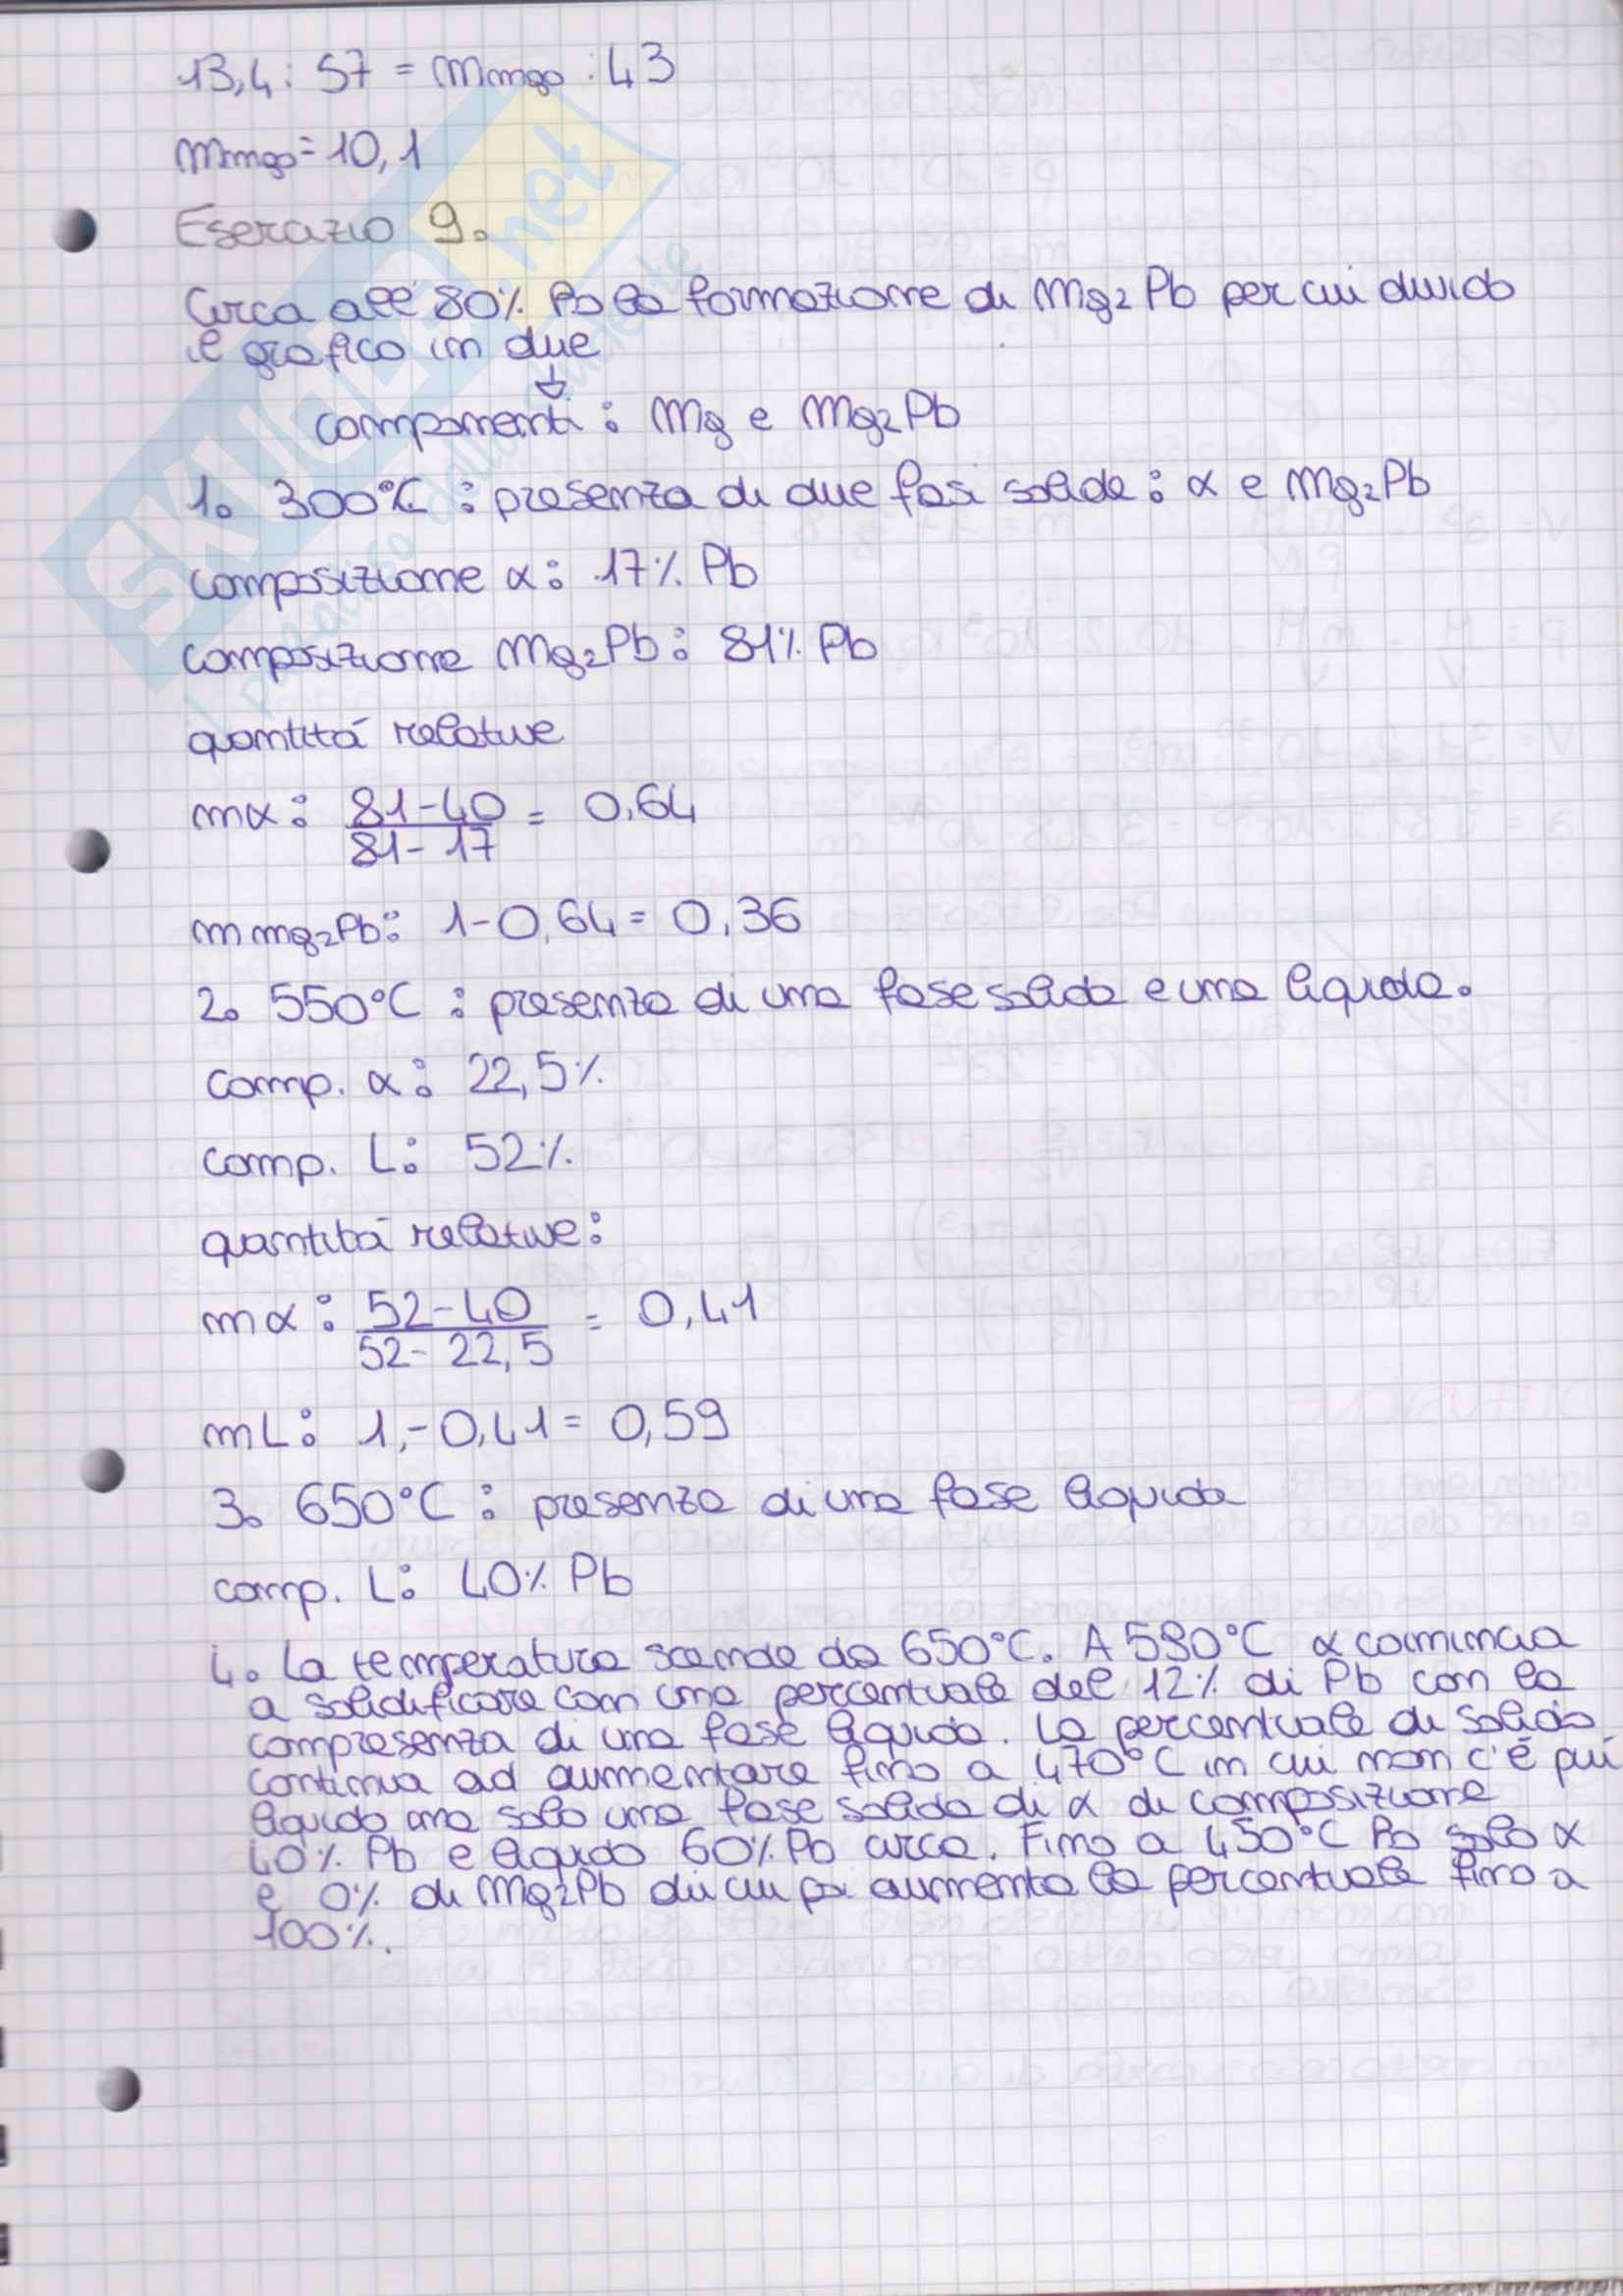 13,4 : 57 = mmgo : 43
mmgo = 10,1
Esercizio 9.
Circa all' 80% ho la formazione di Mg₂Pb per cui divido
il grafico in due
componenti : Mg e Mg₂Pb
1. 300°C : presenza di due fasi solide : α e Mg₂Pb
composizione α : 17% Pb
composizione Mg₂Pb : 81% Pb
quantitá relative
mα : 81-40 / 81-17 = 0,64
m mg₂Pb : 1-0,64 = 0,36
2. 550°C : presenza di una fase solida e una liquida.
comp. α : 22,5%
comp. L : 52%
quantitá relative :
mα : 52-40 / 52-22,5 = 0,41
mL : 1,-0,41 = 0,59
3. 650°C : presenza di una fase liquida
comp. L : 40% Pb
4. La temperatura scende da 650°C. A 590°C α comincia
a solidificare con una percentuale del 12% di Pb con la
compresenza di una fase liquida. La percentuale di solido
continua ad aumentare fino a 470°C in cui non c'é piú
liquido ma solo una fase solida di α di composizione
40% Pb e liquido 60% Pb circa. Fino a 450°C ho solo α
e 0% di Mg₂Pb di cui poi aumenta la percentuale fino a
100%.
SKUOLA.net